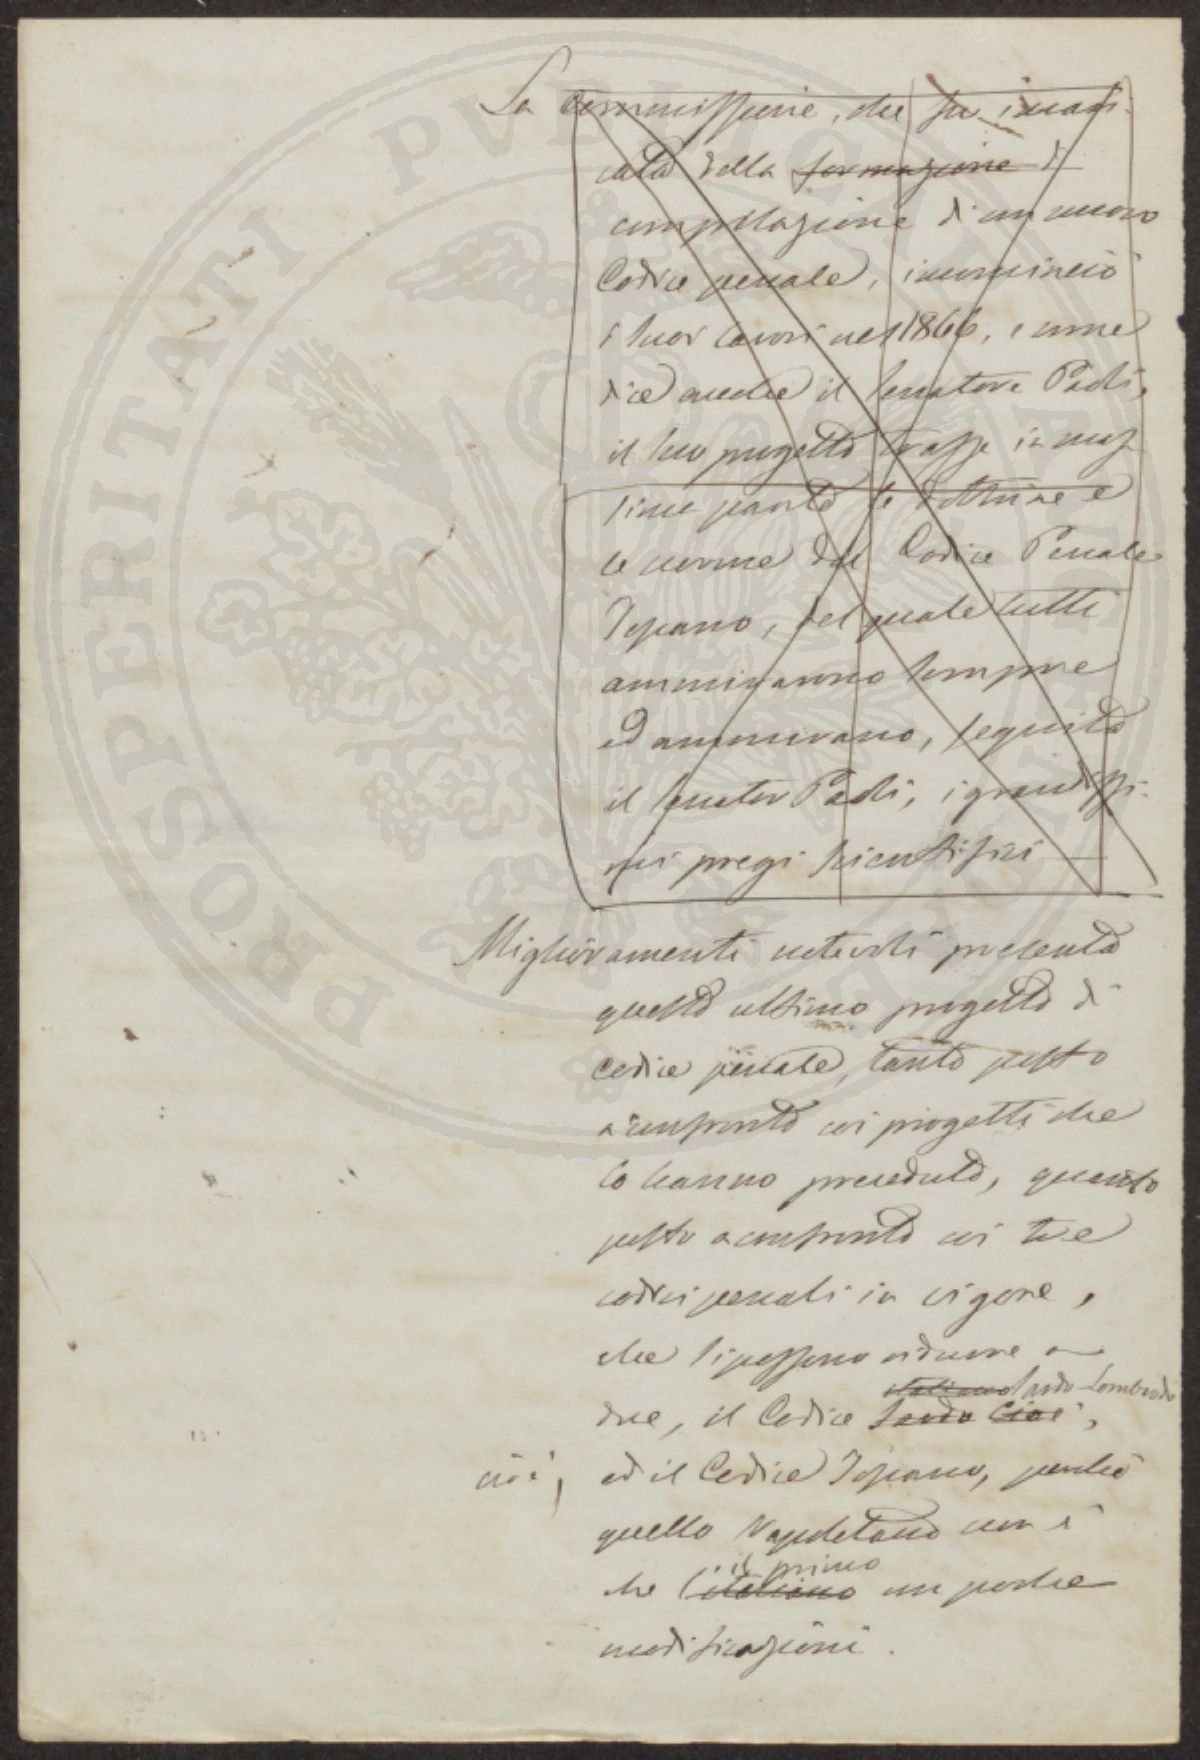 La Commissione, che fu incari-
cata della formazione di
compilazione di un nuovo
Codice penale, incominciò
i suoi lavori nel 1866, e come
dice anche il Senatore Paoli,
il suo progetto trasse in mas
sima parte le dottrine e
le norme dal Codice Penale
Toscano, del quale tutti
ammirarono sempre
ed ammirano, seguita
il Senator Paoli, i grandissi-
mi pregi scientifici
Miglioramenti notevoli presenta
questo ultimo progetto di
Codice penale, tanto posto
a confronto coi progetti che
lo hanno preceduto, quanto
posto a confronto coi tre
codici penali in vigore,
che si possono ridurre a
italiano Sardo-Lombardo
due, il Codice Sardo Cioè,
cioè, ed il Codice Toscano, perchè
quello Napoletano non è
il primo
che l'italiano con poche
modificazioni.
PROSPERITATI PUBLICAE